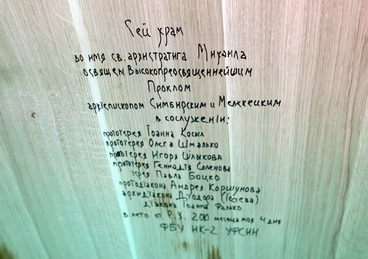 Сей храм
во имя св. архистратига Михаила
освящен Высокопреосвященнейшим
Проклом
архиепископом Симбирским и Мелекесским
в сослужении:
протоиерея Іоанна
протоиерея Олега Шмалько
протоиерея Игоря Шлыкова
протоиерея Геннадія
іерея Павла Боцко
протодіакона Андрея Коршунова
архидіакона
діакона Іоанна
в лето от Р.Х.
ФБУ ИК-2 УФСИН